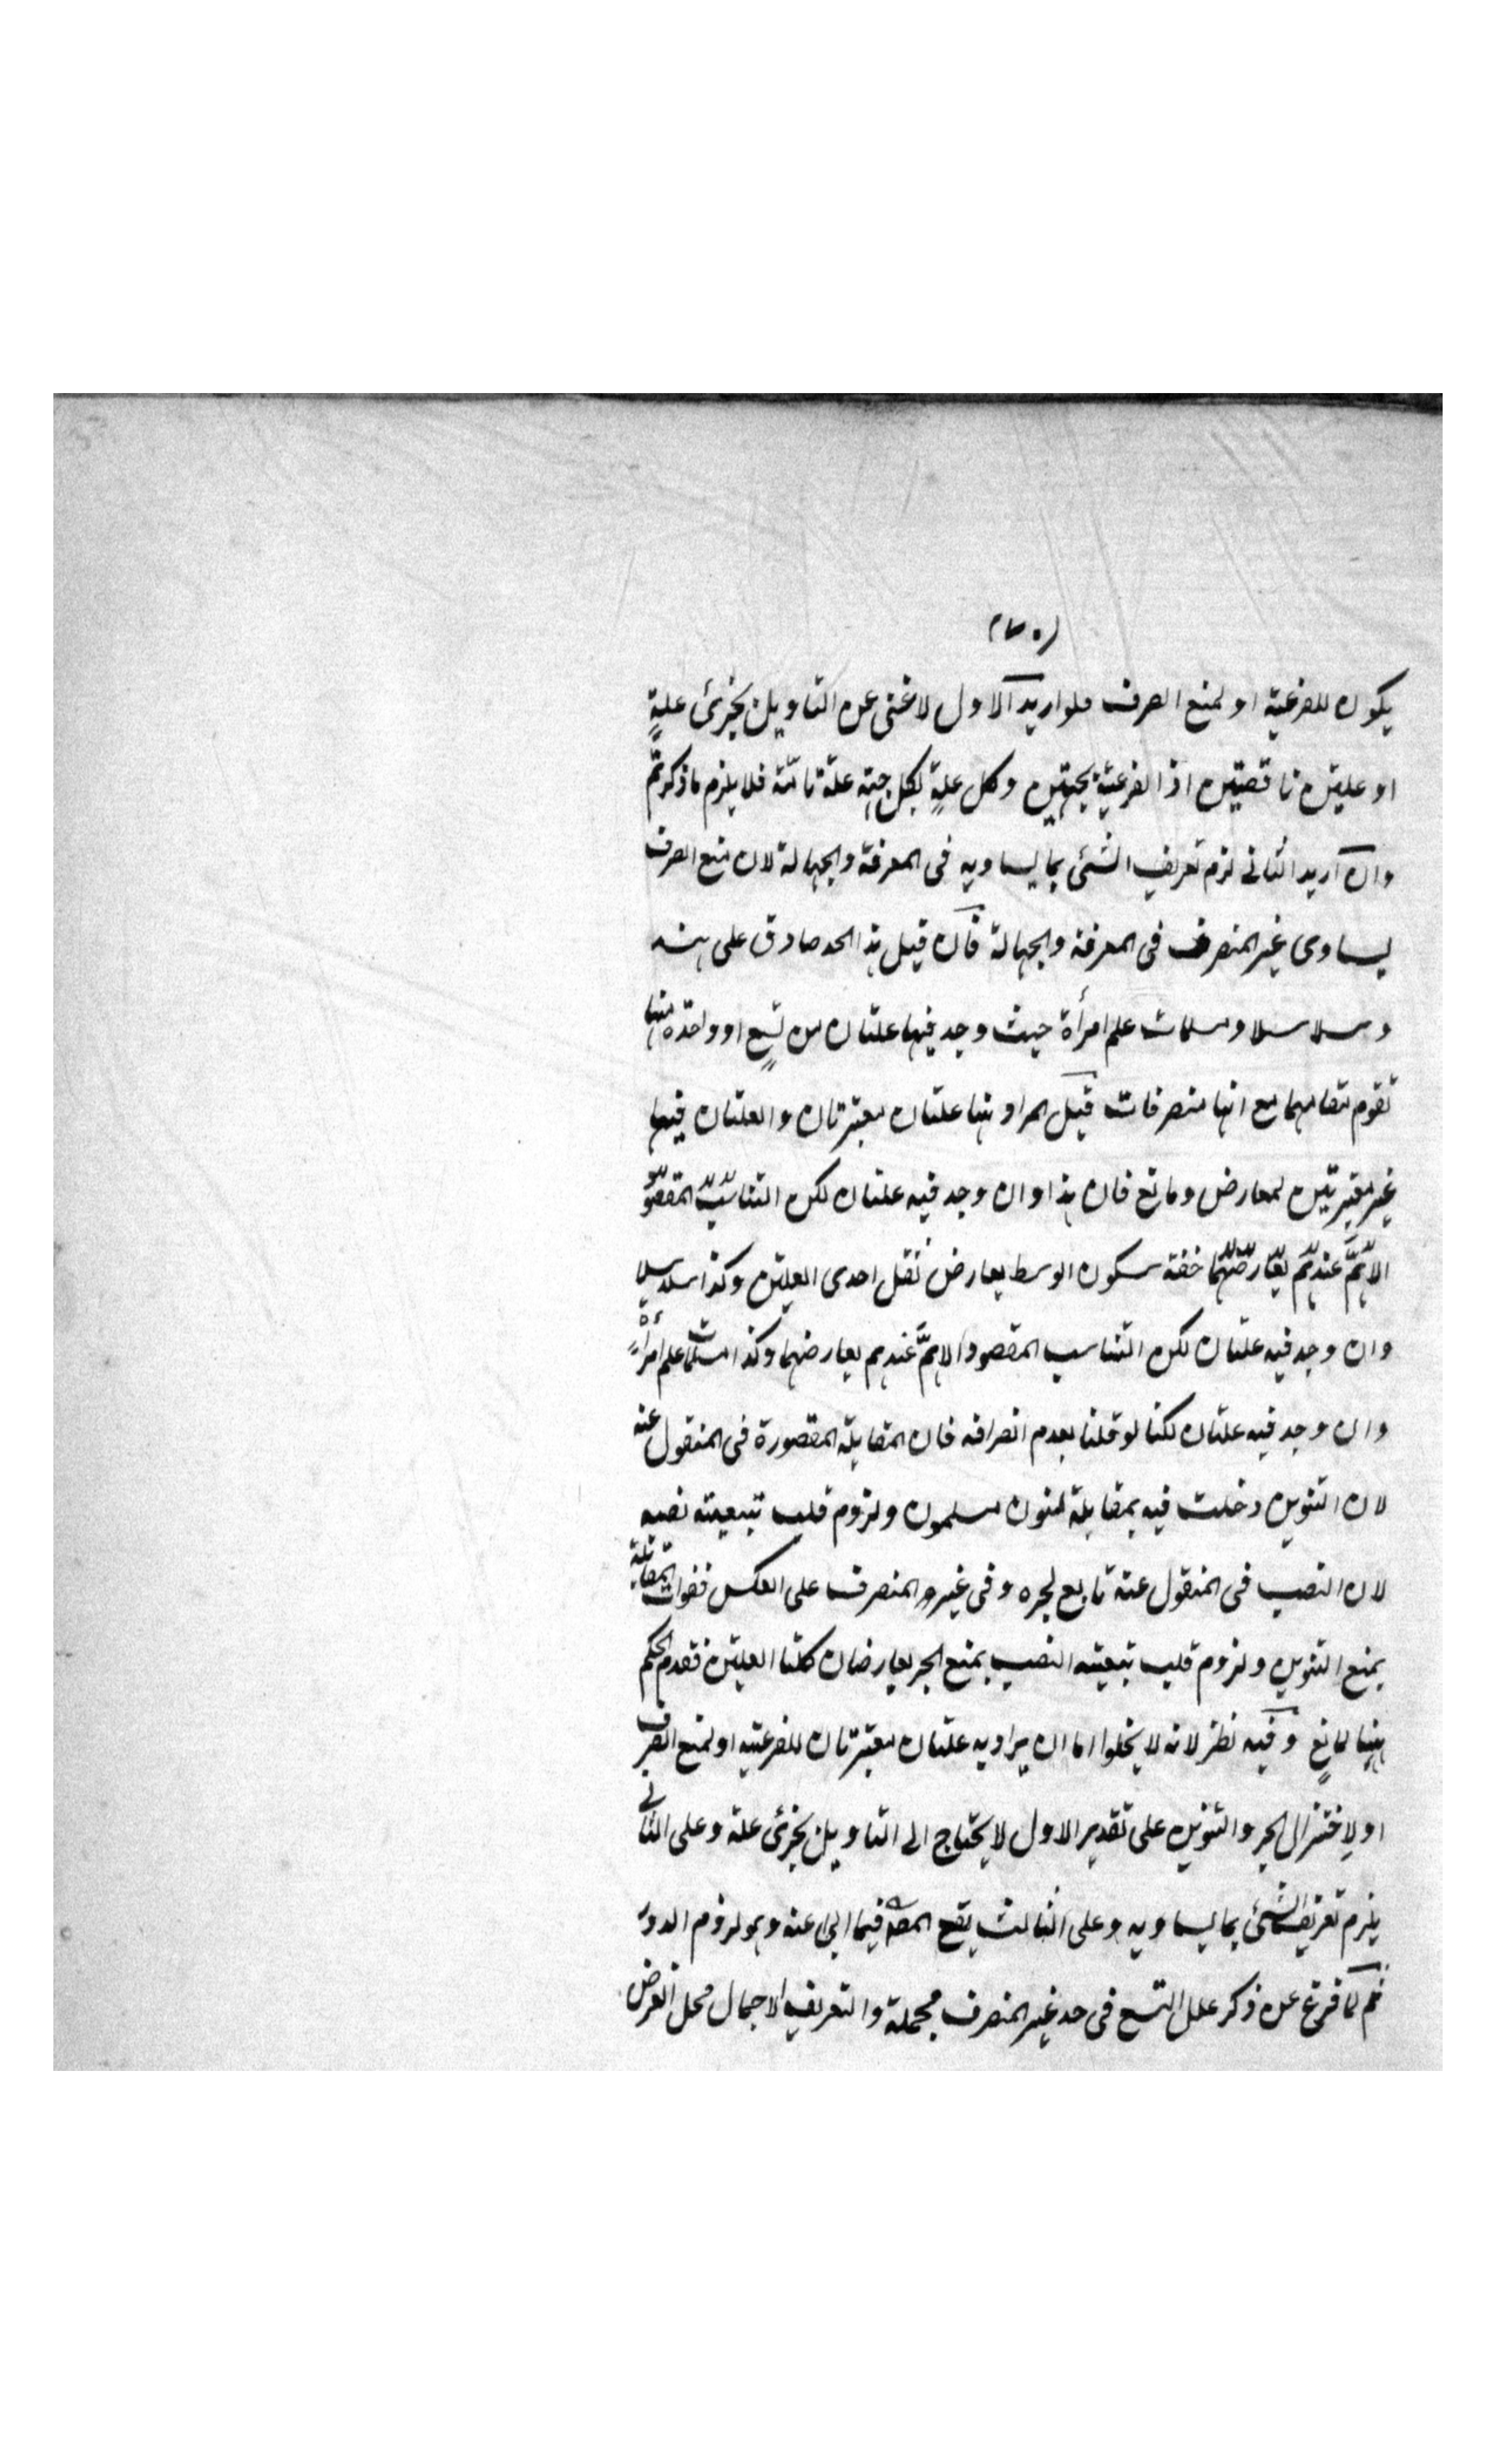 يكون للفرعية او لمنع الصرف فلو اريد الاول لاغنى عن التاويل بجزئ علةٍ
او علتين ناقصتين اذ الفرعية بجهتين وكل علةٍ لكل جهته علة تامة فلا يلزم ما ذكرتم
وان اريد الثانى لزم تعريف الشئ بما يساويه فى المعرفة والجهالة لان منع الصرف
يساوى غير المنصرف فى المعرفة والجهالة فان قيل هذا الحد صادق على هند
وسلاسلا ومسلمات علم امرأة حيث وجد فيها علتان من تسعٍ او واحدة منها
تقوم مقامهما مع انها منصرفات قيل المراد بها علتان معتبرتان والعلتان فيها
غير معتبرتين لمعارض ومانع فان هندا وان وجد فيه علتان لكن التناسب المقصود
الاهمّ عندهم يعارضهما خفة سكون الوسط يعارض ثقل احدى العلتين وكذا سلاسلا
وان وجد فيه علتان لكن التناسب المقصود الاهمّ عندهم يعارضهما وكذا مسلمات علم امرأةً
وان وجد فيه علتان لكنا لو قلنا بعدم انصرافه فات المقابلة المقصورة فى المنقول عنه
لان التنوين دخلت فيه بمقابلة لنون مسلمون ولزوم قلب تبيعيته نصبه
لان النصب فى المنقول عنه تابع لجره وفى غير المنصرف على العكس ففوات المقابلة
بمنع التنوين ولزوم قلب تبعيته النصب بمنع الجر يعارضان كلتا العلتين فقدم الحكم
ههنا لمانعٍ وفيه نظر لانه لا يخلوا اما ان يراد به علتان معتبرتان للفرعية او لمنع الصرف
او لاختزال الجر والتنوين على تقدير الاول لا يحتاج الى التاويل بجزئ علة وعلى الثانى
يلزم تعريف الشئ بما يساويه وعلى الثالث يقع المصـ فيما ابى عنه وهو لزوم الدور
ثم لما فرغ عن ذكر علل التسع فى حد غير المنصرف مجملة والتعريف الاجمال محل الغرض